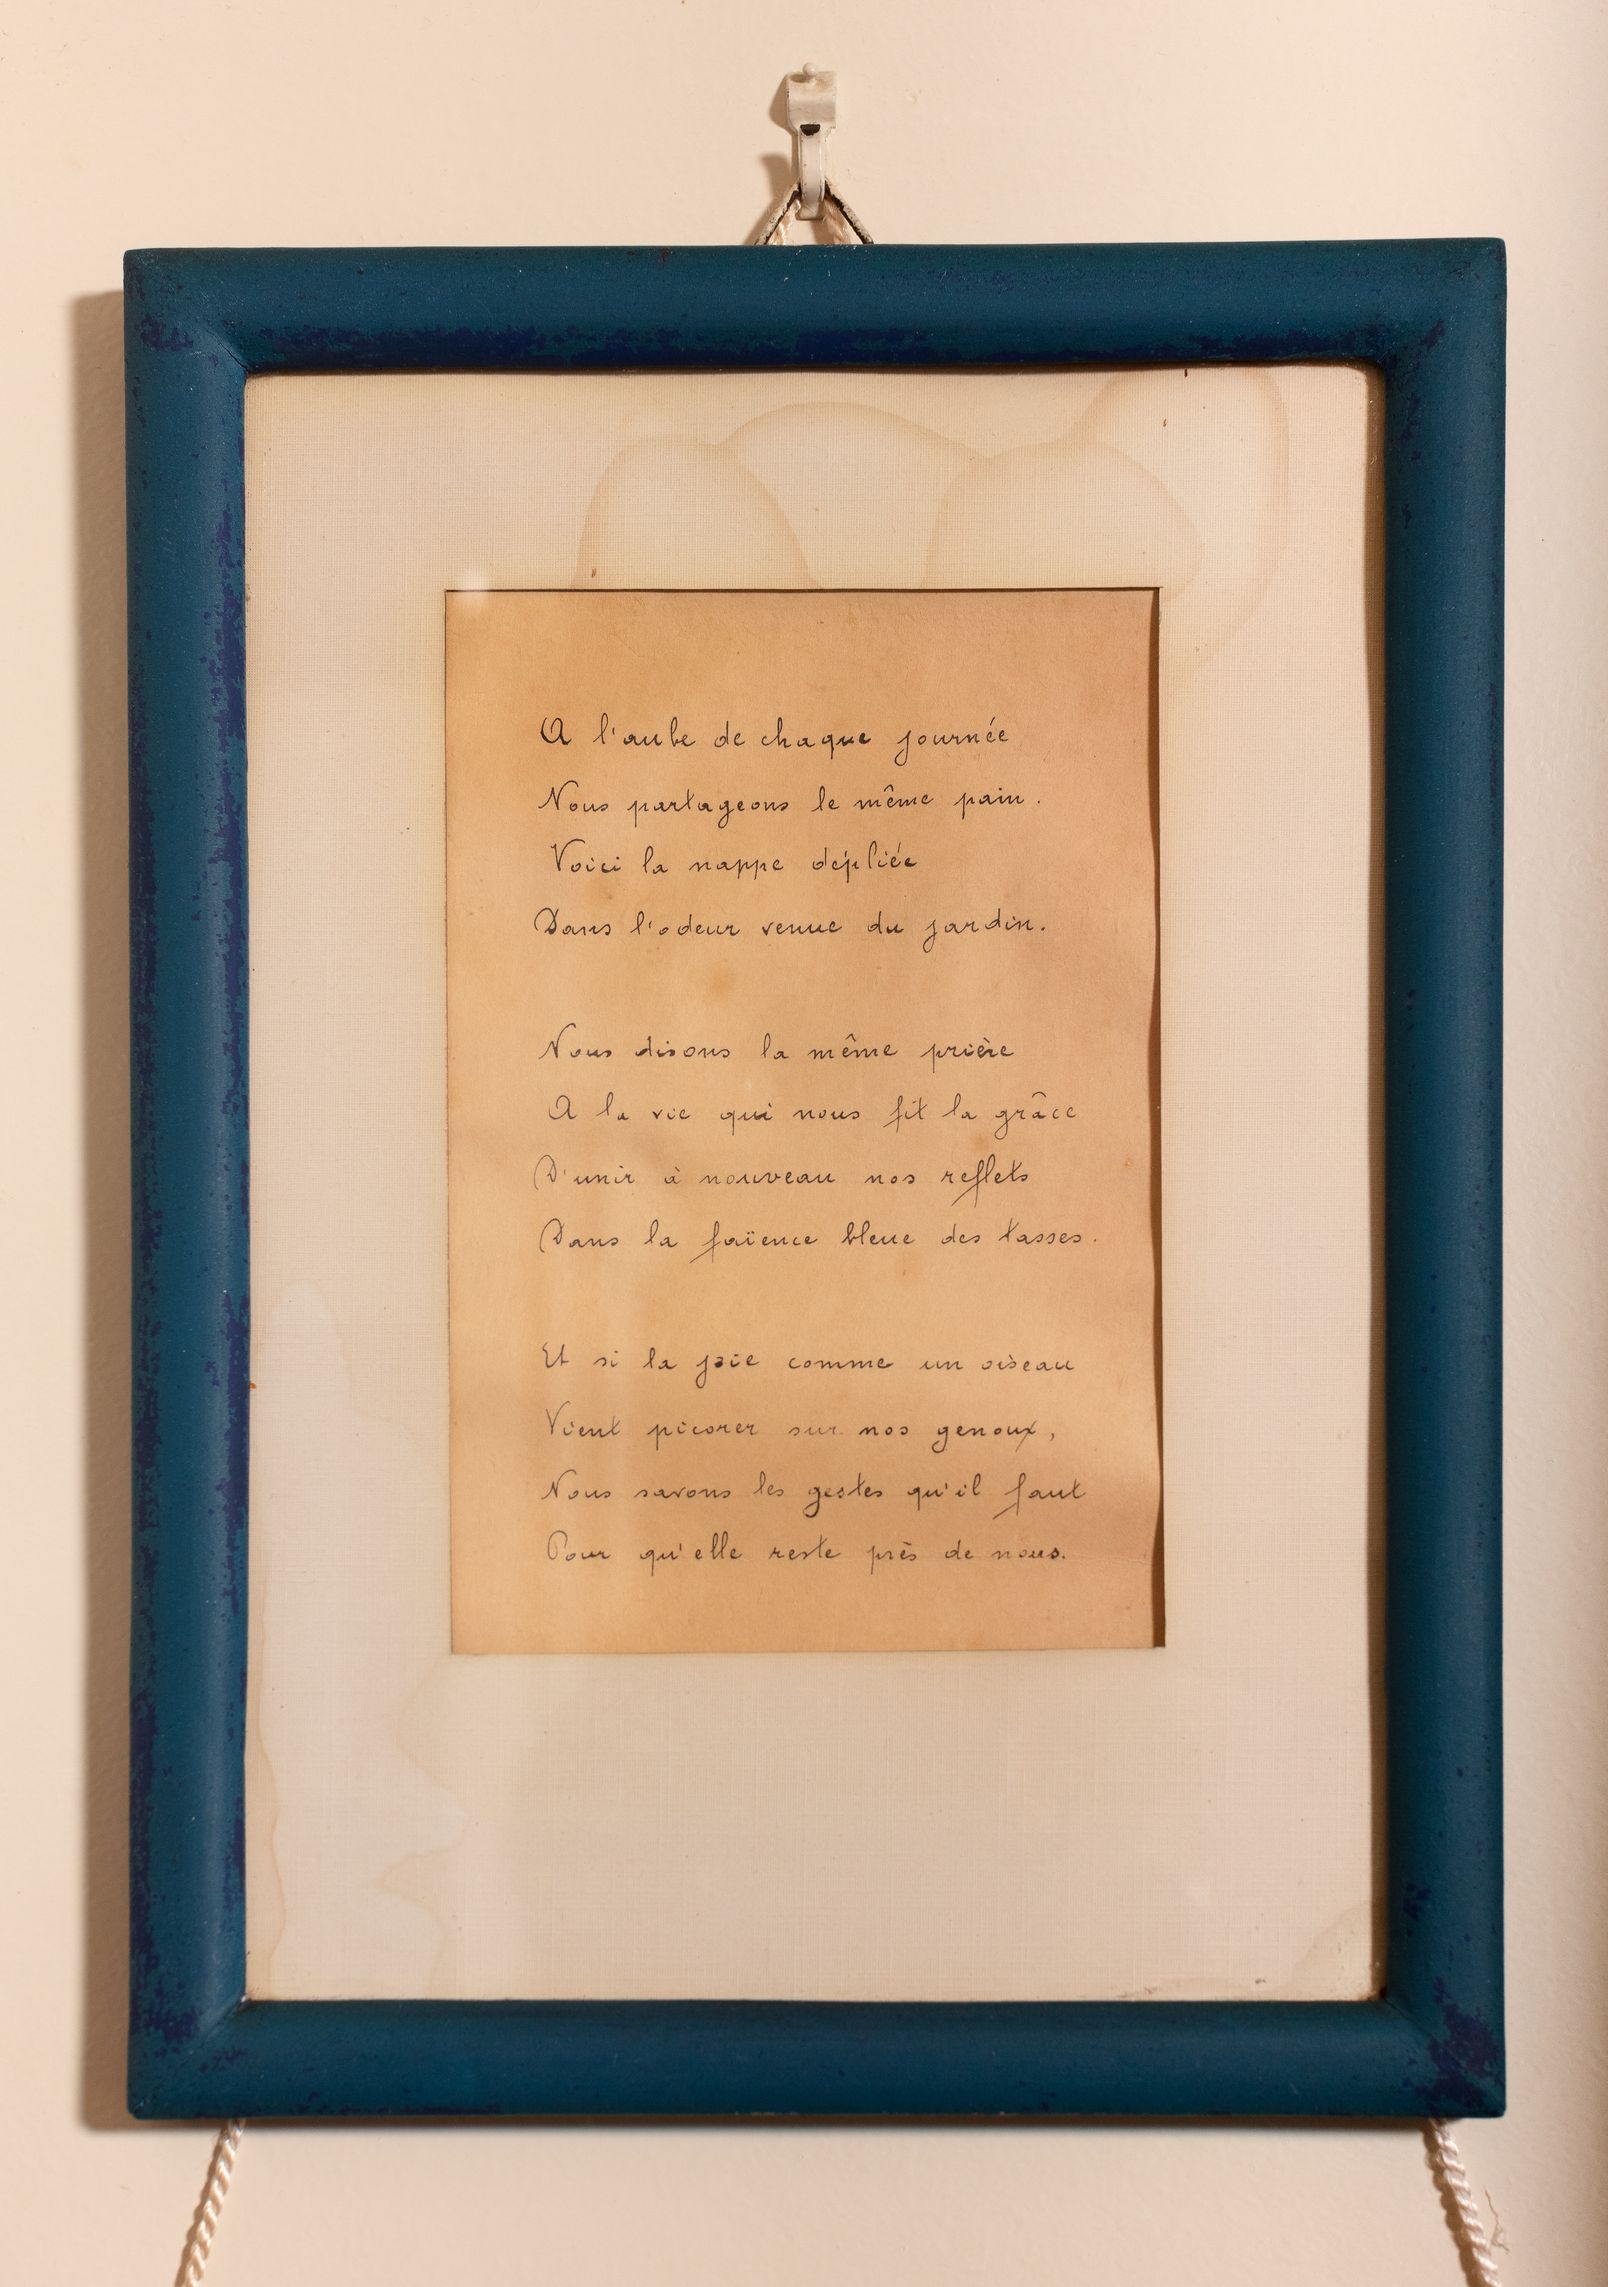 A l'aube de chaque journée
Nous partageons le même pain.
Voici la nappe dépliée
Dans l'odeur venue du jardin.
Nous disons la même prière
A la vie qui nous fit la grâce
D'unir à nouveau nos reflets
Dans la faïence bleue des tasses.
Et si la joie comme un oiseau
Vient picorer sur nos genoux,
Nous savons les gestes qu'il faut
Pour qu'elle reste près de nous.